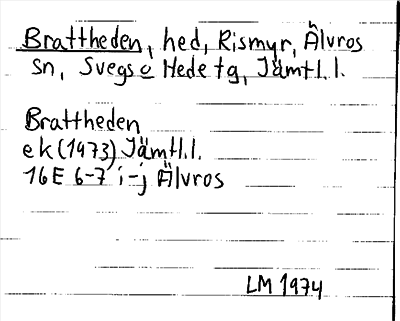 Brattheden, hed, Rismyr, Älvros
sn, Svegs o Hede tg, Jämtl. l.
Brattheden
ek (1973) Jämtl. l.
16E 6-7 i-j Älvros
LM 1974